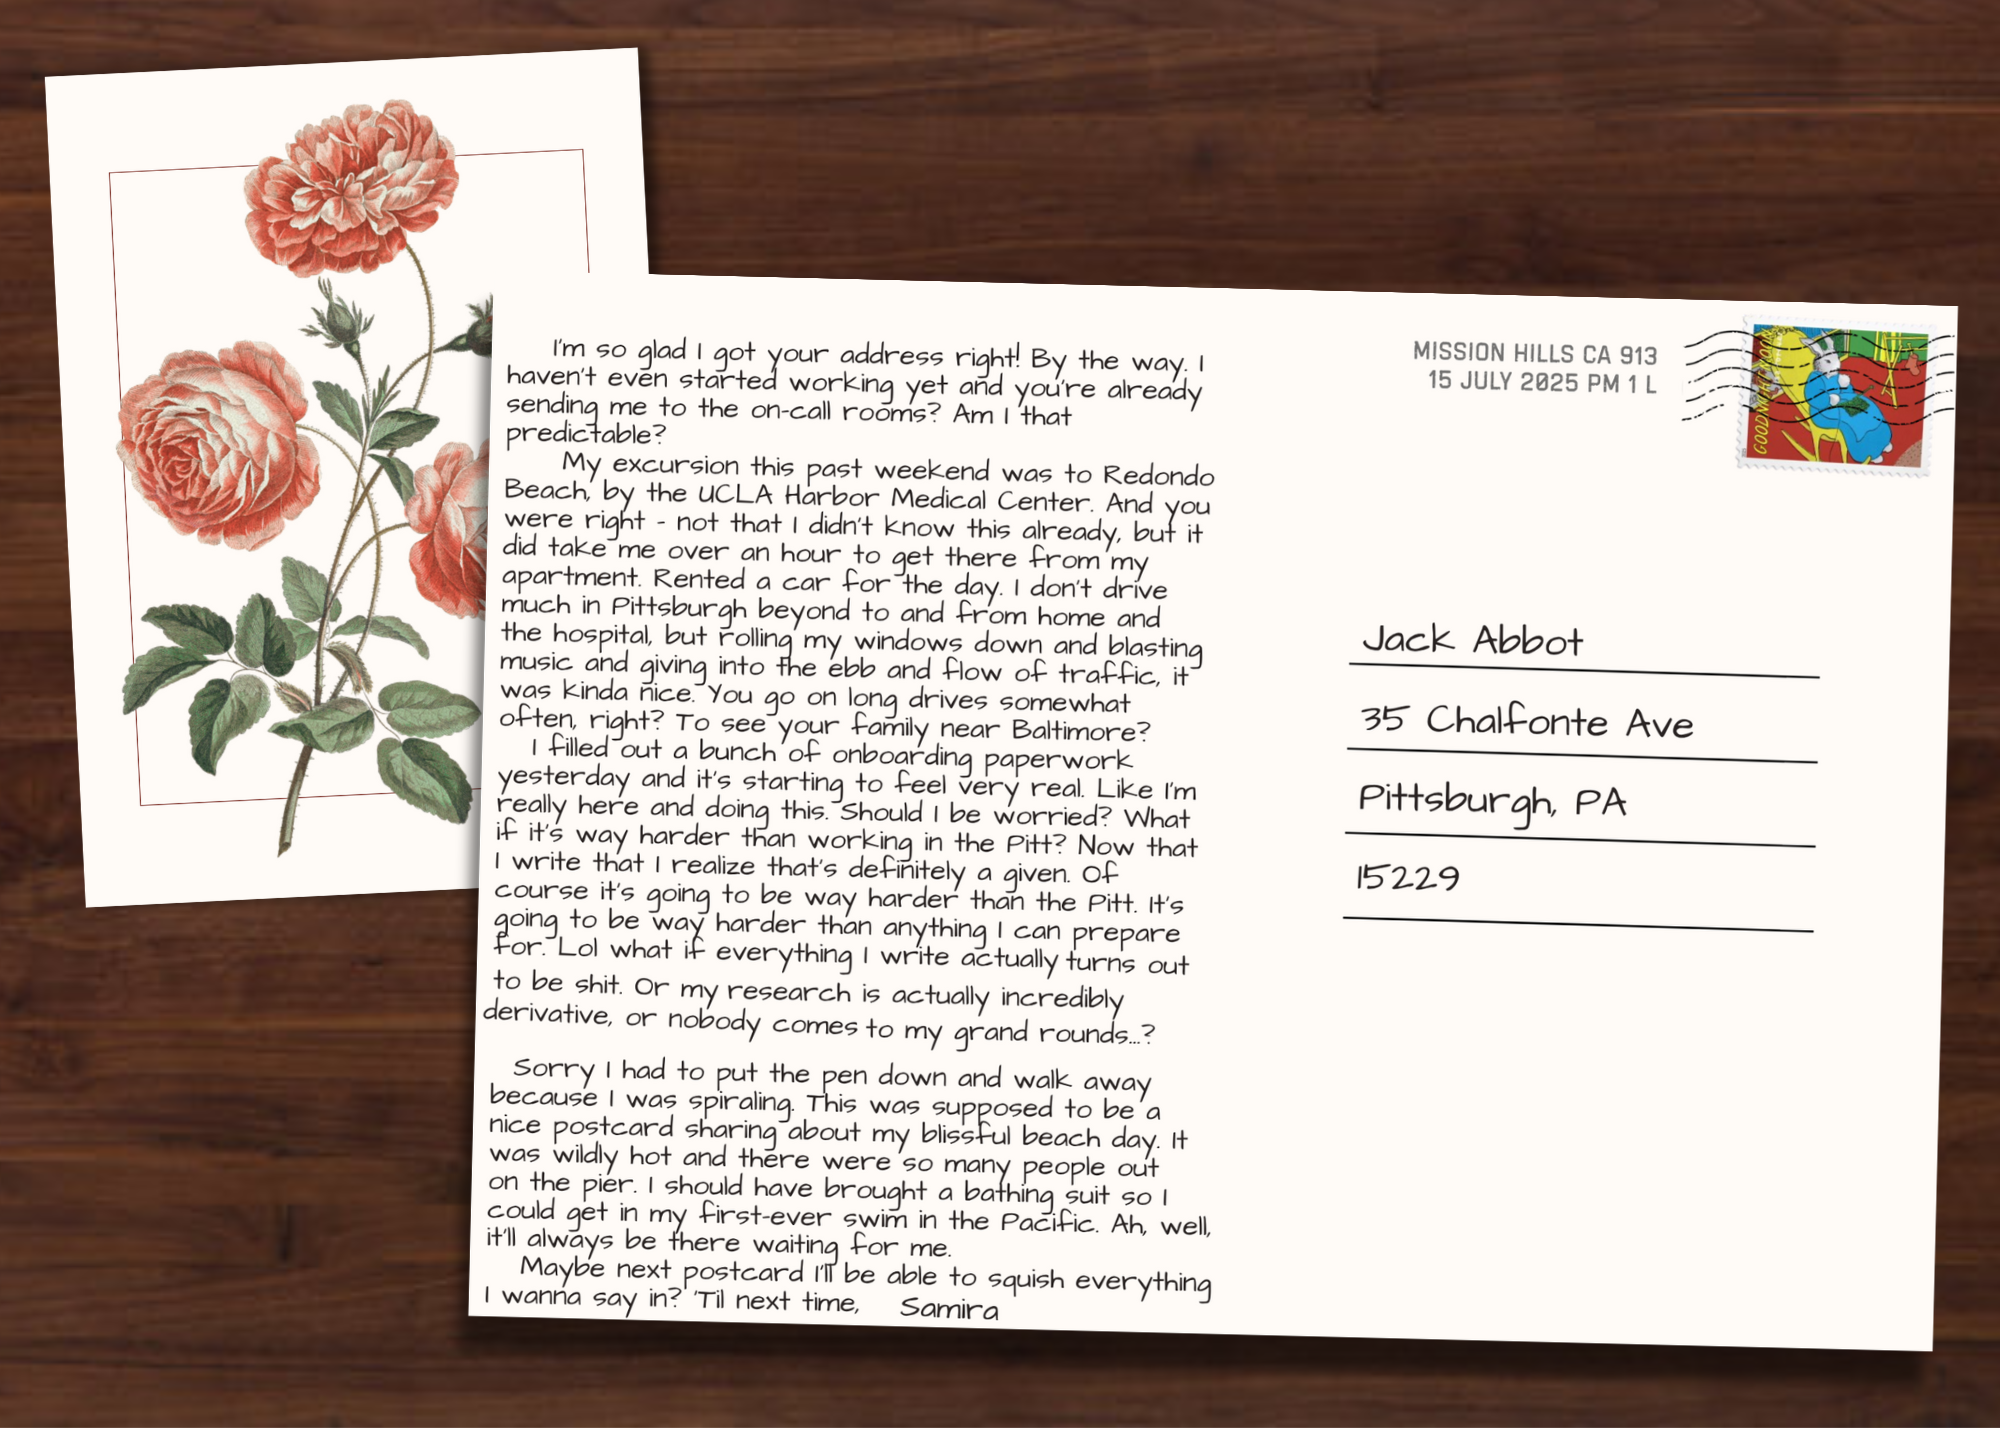 I'm so glad I got your address right! By the way. I
haven't even started working yet and you're already
sending me to the on-call rooms? Am I that
predictable?
My excursion this past weekend was to Redondo
Beach, by the UCLA Harbor Medical Center. And you
were right - not that I didn't know this already, but it
did take me over an hour to get there from my
apartment. Rented a car for the day. I don't drive
much in Pittsburgh beyond to and from home and
the hospital, but rolling my windows down and blasting
music and giving into the ebb and flow of traffic, it
was kinda nice. You go on long drives somewhat
often, right? To see your family near Baltimore?
I filled out a bunch of onboarding paperwork
yesterday and it's starting to feel very real. Like I'm
really here and doing this. Should I be worried? What
if it's way harder than working in the Pitt? Now that
I write that I realize that's definitely a given. Of
course it's going to be way harder than the Pitt. It's
going to be way harder than anything I can prepare
for. Lol what if everything I write actually turns out
to be shit. Or my research is actually incredibly
derivative, or nobody comes to my grand rounds...?
Sorry I had to put the pen down and walk away
because I was spiraling. This was supposed to be a
nice postcard sharing about my blissful beach day. It
was wildly hot and there were so many people out
on the pier. I should have brought a bathing suit so I
could get in my first-ever swim in the Pacific. Ah, well,
it'll always be there waiting for me.
Maybe next postcard I'll be able to squish everything
I wanna say in? 'Til next time, Samira
MISSION HILLS CA 913
15 JULY 2025 PM 1 L
Jack Abbot
35 Chalfonte Ave
Pittsburgh, PA
15229